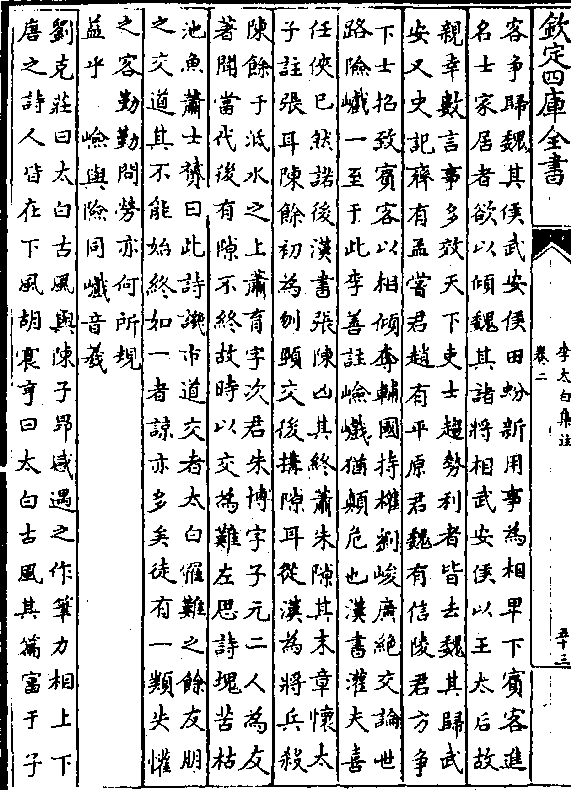 欽定四庫全書
李太白集注
卷二
五十三
客爭歸魏其侯武安侯田蚡新用事為相卑下賓客進
名士家居者欲以傾魏其諸將相武安侯以王太后故
親幸數言事多效天下吏士趨勢利者皆去魏其歸武
安又史記齊有孟嘗君趙有平原君魏有信陵君方爭
下士招致賓客以相傾奪輔國持權劉峻廣絶交論世
路險巇一至于此李善註嶮巇猶顛危也漢書灌夫喜
任俠已然諾後漢書張陳凶其終蕭朱隙其末章懷太
子註張耳陳餘初為刎頸交後搆隙耳從漢為將兵殺
陳餘于泜水之上蕭育字次君朱博字子元二人為友
著聞當代後有隙不終故時以交為難左思詩塊苦枯
池魚蕭士贇曰此詩譏市道交者太白罹難之餘友朋
之交道其不能始終如一者諒亦多矣徒有一類失懽
之客勤勤問勞亦何所規
益乎 嶮與險同巇音羲
劉克莊曰太白古風與陳子昂感遇之作筆力相上下
唐之詩人皆在下風胡震亨曰太白古風其篇富于子